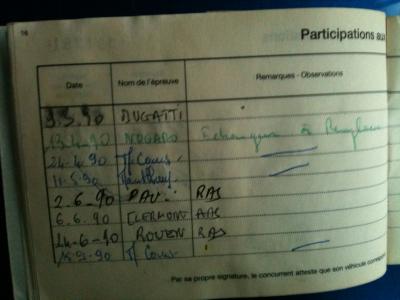 16
Participations aux
Date Nom de l'épreuve Remarques - Observations
3.3.90 DUGATTI
13.4.90 NOGARO à
24.4.90 Tt Cours
11.5.90
2.6.90 PAU. RAS
6.6.90 CLERMONT RAS
24-6-90 ROUEN RAS
.90 Tt Cours
Par sa propre signature, le concurrent atteste que son véhicule correspond